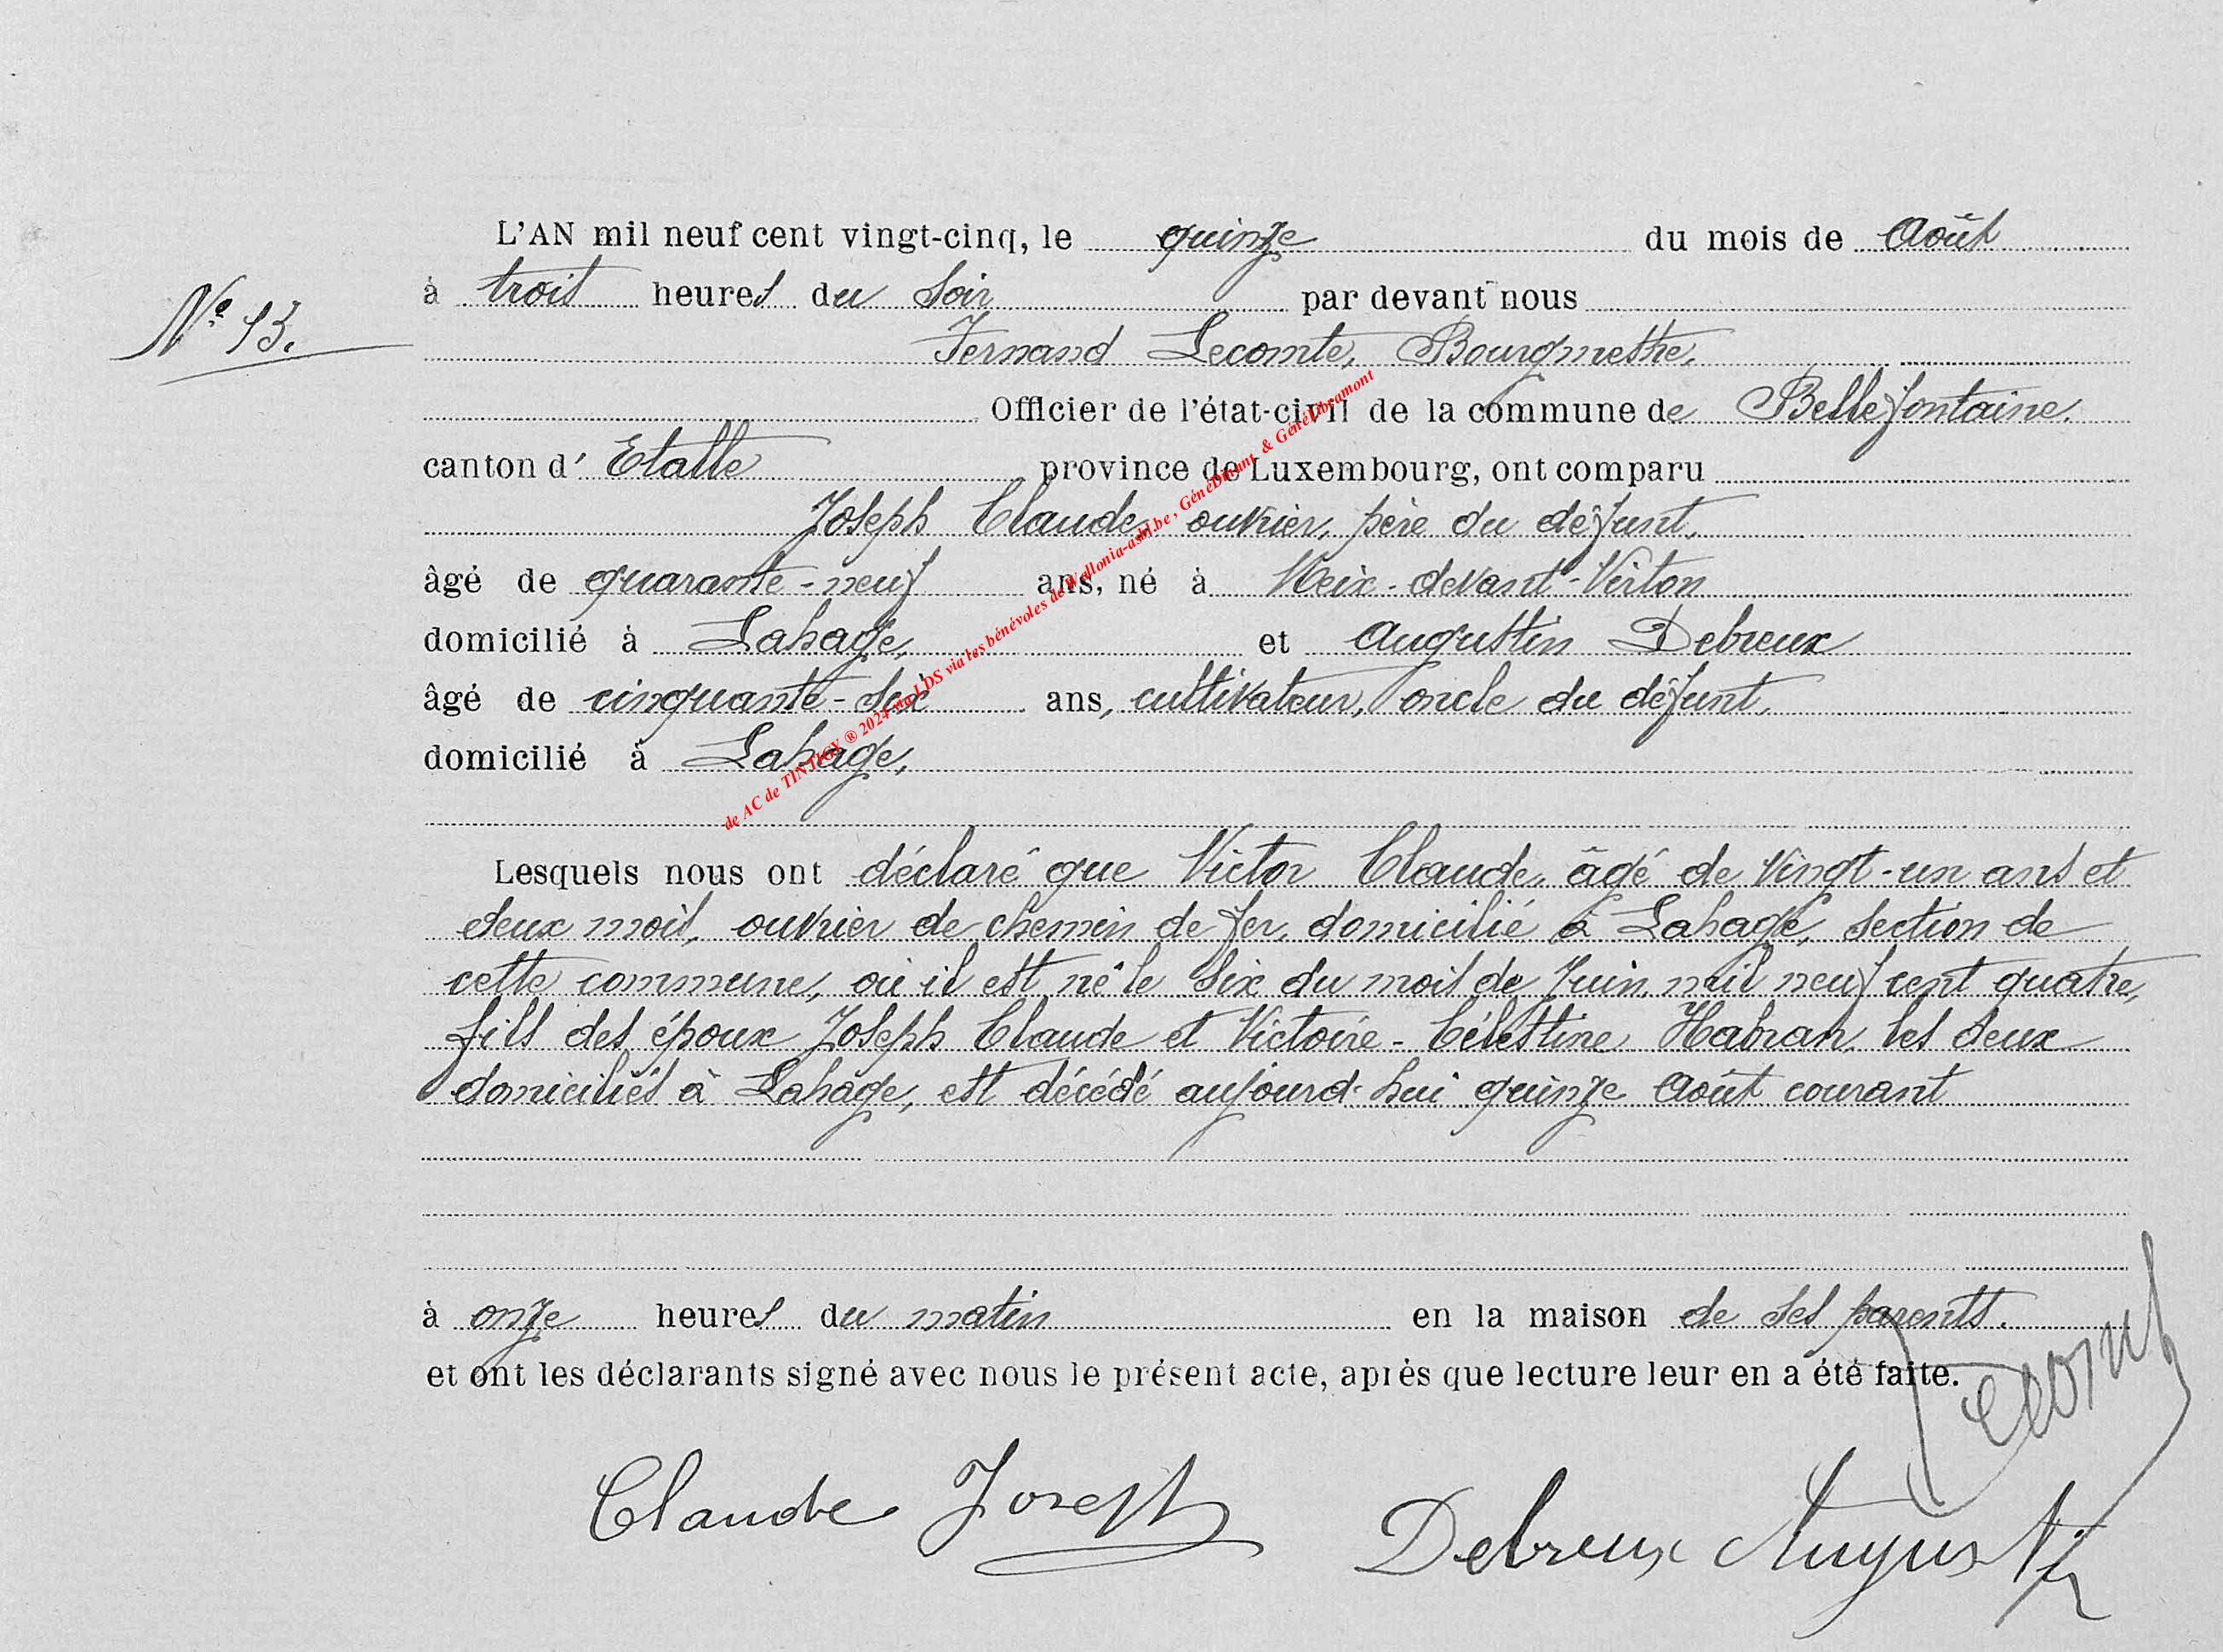 L'AN mil neuf cent vingt-cinq, le quinze du mois de Août
à trois heures du soir par devant nous
N° 13.
Fernand Lecomte, Bourgmestre,
Officier de l'état-civil de la commune de Bellefontaine.
canton d' Etalle province de Luxembourg, ont comparu
Joseph Claude, ouvrier, père du défunt,
âgé de quarante-neuf ans, né à Meix-devant-Virton
domicilié à Lahage, et Augustin Debreux
âgé de cinquante-six ans, cultivateur, oncle du défunt,
domicilié à Lahage,
de AC de TINTIGY ® 2024 via LDS via les bénévoles de Wallonia-asbl.be, GénéDinant & GénéLibramont
Lesquels nous ont déclaré que Victor Claude, âgé de vingt-un ans et
deux mois, ouvrier de chemin de fer, domicilié à Lahage, section de
cette commune, où il est né le six du mois de Juin, mil neuf cent quatre,
fils des époux Joseph Claude et Victoire-Célestine Habran, les deux
domiciliés à Lahage, est décédé aujourd'hui quinze Août courant
à onze heures du matin en la maison de ses parents.
et ont les déclarants signé avec nous le présent acte, après que lecture leur en a été faite.
Claude Joseph
Debreux Augustin